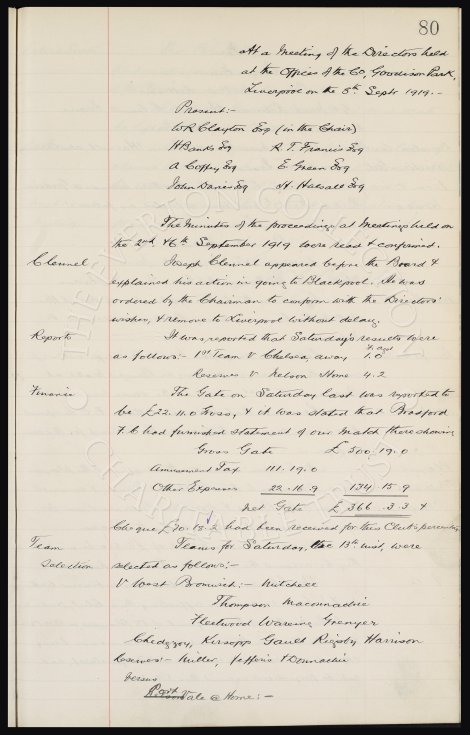 80
At a Meeting of the Directors held
at the Offices of the Co, Goodison Park,
Liverpool on the Septr 1919.-
Present:-
WR Clayton Esq (in the Chair)
H Banks Esq R. T. Francis Esq
A Coffey Esq E Green Esq
John Davies Esq H. Halsall Esq
The Minutes of the proceedings at Meetings held on
the 2nd & 6th September 1919 were read & confirmed.
Clennel Joseph Clennel appeared before the Board &
explained his action in going to Blackpool. He was
ordered by the Chairman to conform with the Directors'
wishes, & remove to Liverpool without delay.
Reports It was reported that Saturday's results were
as follows:- 1st Team V Chelsea, away 1.0
F. agst
Reserves V Nelson Home 4.2
Finance The Gate on Saturday last was reported to
be £22.11.0 Gross, & it was stated that Bradford
F.C. had furnished statement of our Match there showing
Gross Gate £ 500.19.0
Amusement Tax 111.19.0
Other Expenses 22.16.9 134 15.9
Net Gate £ 366.3.3 &
Cheque had been received for this Club's percentage
Team Teams for Saturday, the 13th inst, were
Selection selected as follows:-
V West Bromwich:- Mitchell
Thompson Maconnachie
Fleetwood Wareing Grenyer
Chedgzoy, Kirsopp Gault Rigsby Harrison
Reserves:- Miller, Jefferis & Donnachie
versus
Port Vale @ Home:-
THE EVERTON COLLECTION
CHARITABLE TRUST